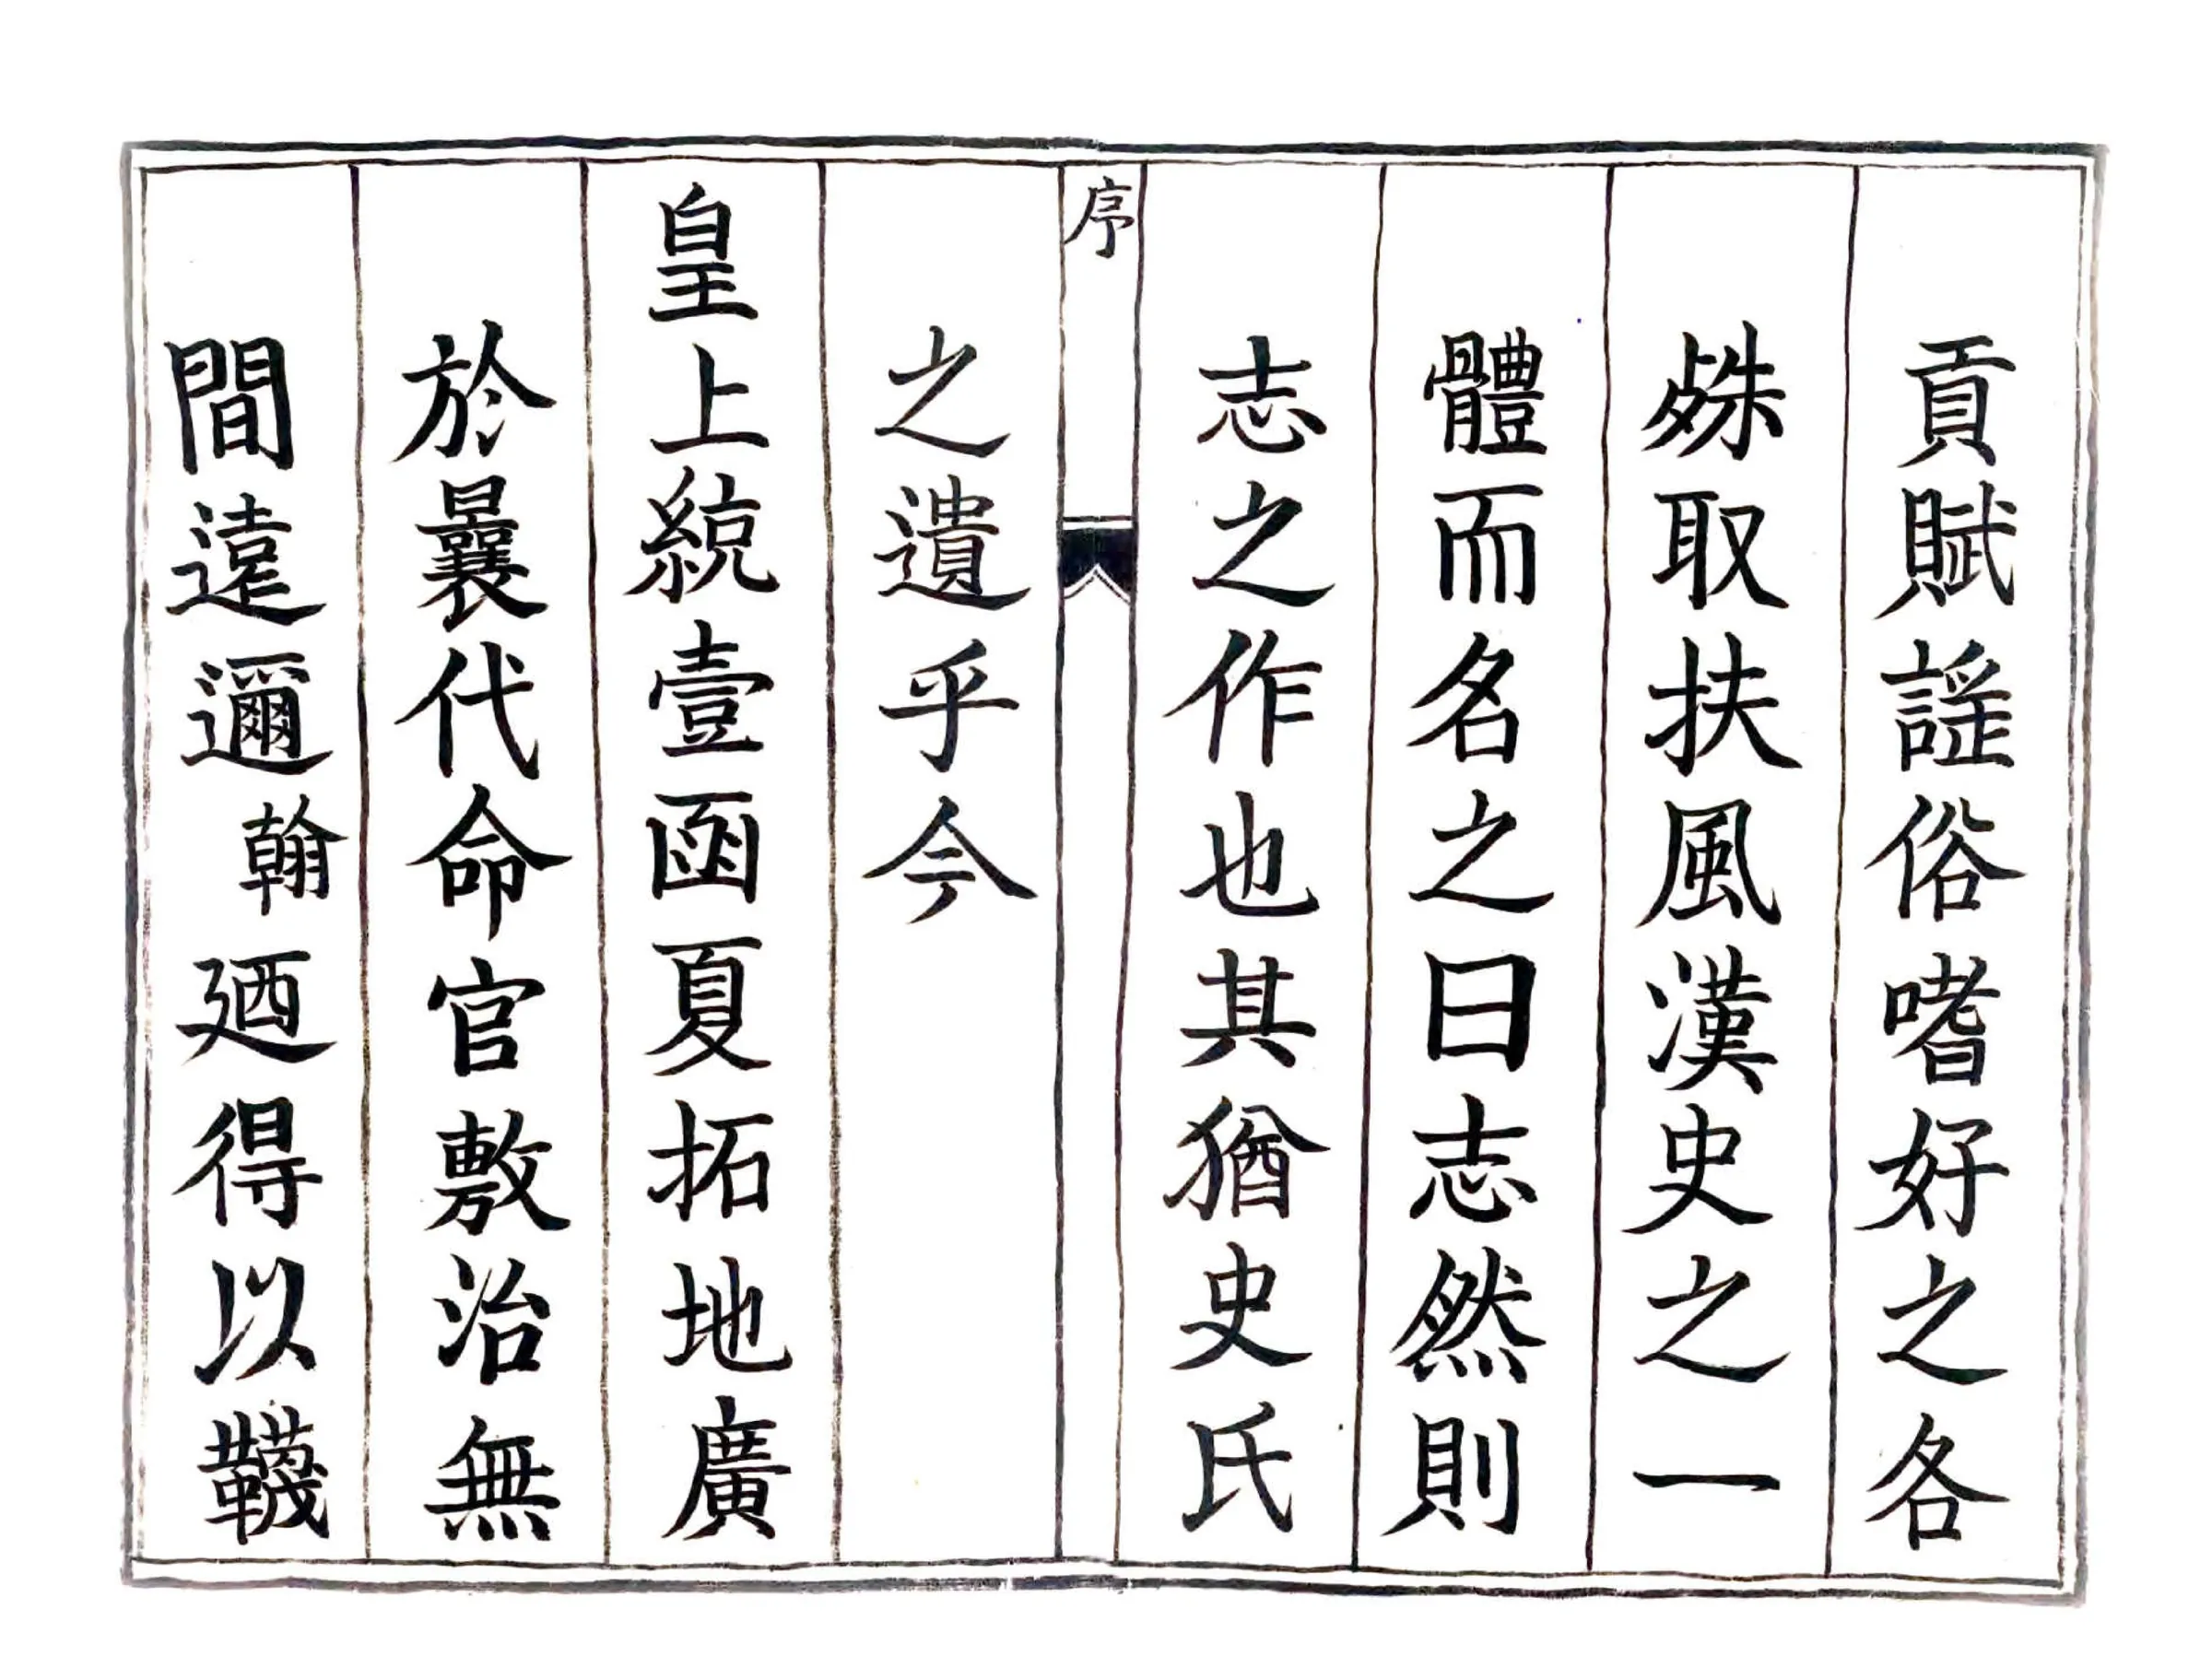 貢賦謡俗嗜好之各
殊取扶風漢史之一
體而名之曰志然則
志之作也其猶史氏
序
之遺乎今
皇上統壹函夏拓地廣
於曩代命官敷治無
間遠邇翰廼得以韈